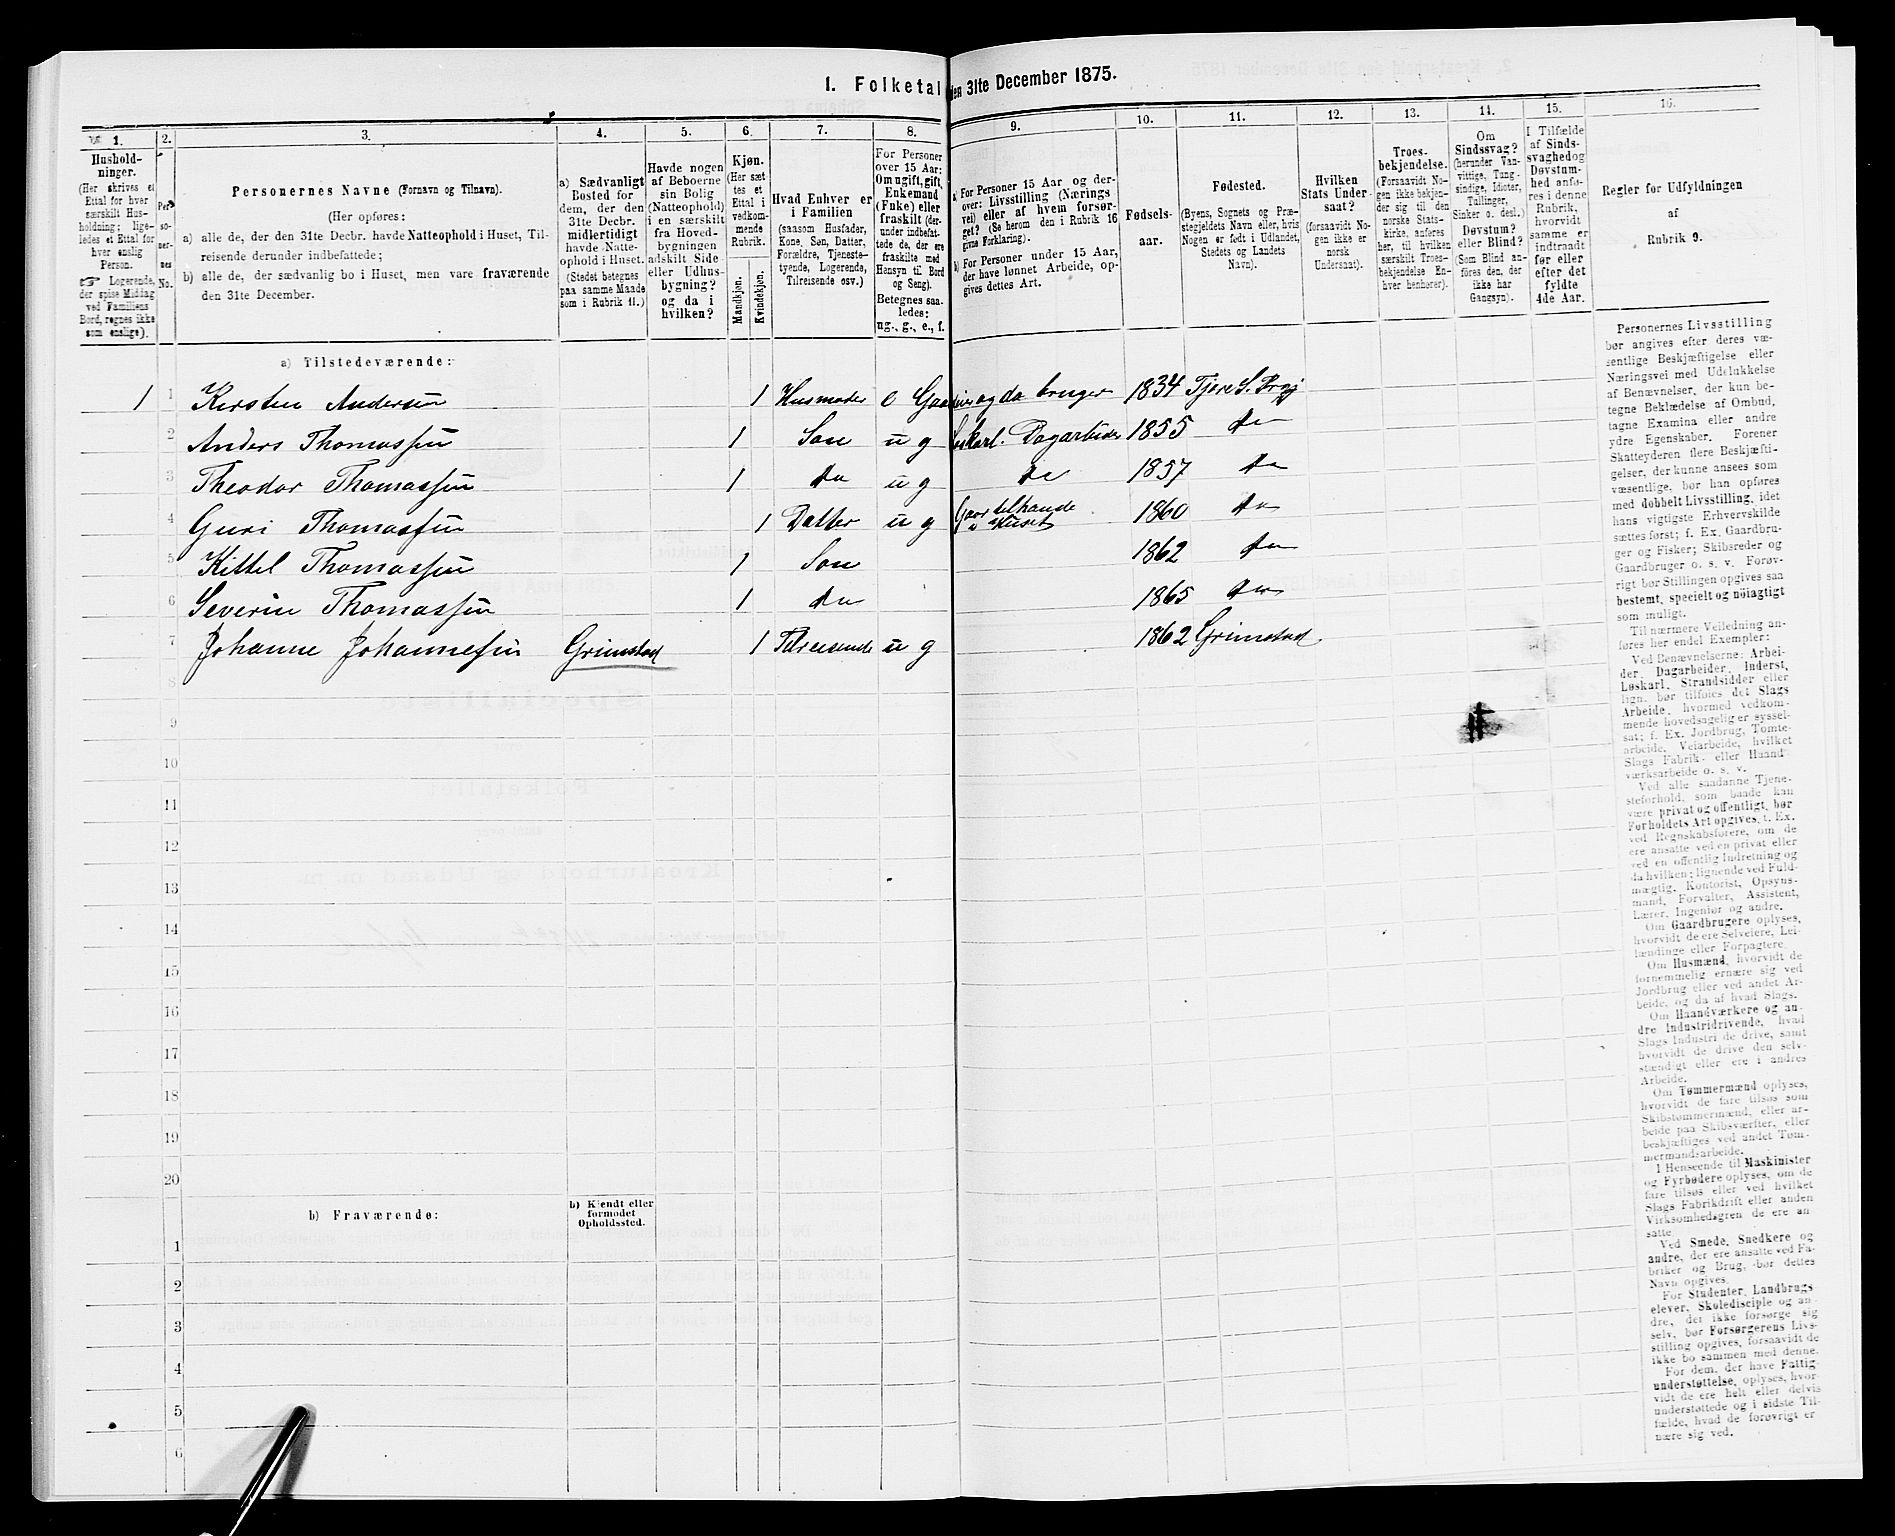 1. Folketal den 31te December 1875.
1. 2. 3. 4. 5. 6. 7. 8. 9. 10. 11. 12. 13. 14. 15. 16.
Hushold-
ninger.
(Her skrives et
Ettal for hver
særskilt Hus-
holdning; lige-
ledes et Ettal for
hver enslig
Person.
☞ Logerende,
der spise Middag
ved Familiens
Bord, regnes ikke
som enslige).
Per-
so-
ner-
nes
No.
Personernes Navne (Fornavn og Tilnavn).
(Her opføres:
a) alle de, der den 31te Decbr. havde Natteophold i Huset, Til-
reisende derunder indbefattede;
b) alle de, der sædvanlig bo i Huset, men vare fraværende
den 31te December.
a) Sædvanligt
Bosted for
dem, der den
31te Decbr.
midlertidigt
havde Natte-
ophold i Huset.
(Stedet betegnes
paa samme Maade
som i Rubrik 11.)
Havde nogen
af Beboerne
sin Bolig
(Natteophold)
i en særskilt
fra Hoved-
bygningen
adskilt Side
eller Udhus-
bygning?
og da i
hvilken?
Kjøn.
(Her sæt
tes et
Ettal i
vedkom-
mende
Rubrik.
Mandkjøn.
Kvindekjøn.
Hvad Enhver er
i Familien
(saasom Husfader,
Kone, Søn, Datter,
Forældre, Tjeneste-
tyende, Logerende,
Tilreisende osv.)
For Personer
over 15 Aar:
Om ugift, gift,
Enkemand
(Enke) eller
fraskilt (der-
under indbefat-
tede de, der ere
fraskilte med
Hensyn til Bord
og Seng).
Betegnes saa-
ledes:
ug., g., e., f.
a) For Personer 15 Aar og der-
over: Livsstilling (Nærings
vei) eller af hvem forsør-
get? (Se herom den i Rubrik 16
givne Forklaring).
b) For Personer under 15 Aar,
der have lønnet Arbeide, op-
gives dettes Art.
Fødsels-
aar.
Fødested.
(Byens, Sognets og Præ-
stegjeldets Navn eller, hvis
Nogen er født i Udlandet,
Stedets og Landets
Navn).
Hvilken
Stats Under-
saat?
(forsaavidt No-
gen ikke er
norsk
Undersaat).
Troes-
bekjendelse.
(Forsaavidt No-
gen ikke bekjen-
der sig til den
norske Stats-
kirke, anføres
her, til hvilken
særskilt Troes-
bekjendelse En-
hver henhører).
Om
Sindssvag?
(herunder Van-
vittige, Tung-
sindige, Idioter,
Tallinger,
Sinker o. desl.)
Døvstum?
eller Blind?
(Som Blind an-
føres den, der
ikke har
Gangsyn).
I Tilfælde
af Sinds-
svaghed og
Døvstum-
hed anfø-
res i denne
Rubrik,
hvorvidt
samme er
indtraadt
før eller
efter det
fyldte
4de Aar.
Regler for Udfyldningen
af
Rubrik 9.
a) Tilstedeværende:
1 1 Kirsten Andersen 1 Husmoder e Gaardeier og do bruger 1834 Tjøre S.
2 Anders Thomassen 1 Søn u g Løskarl. Dagarbeider 1855 do
3 Theodor Thomassen 1 do u g do 1857 do
4 Guri Thomassen 1 Datter u g tilhaande i Huset 1860 do
5 Kittel Thomassen 1 Søn 1862 do
6 Severin Thomassen 1 do 1865 do
7 Johanne Johannesen Grimstad 1 Tilreisende u g 1862 Grimstad.
8
9
10
11
12
13
14
15
16
17
18
19
20
b) Fraværende:
b) Kjendt eller
formodet
Opholdssted.
1
2
3
4
5
6
Personernes Livsstilling
bør angives efter deres væ-
sentlige Beskjæftigelse eller
Næringsvei med Udelukkelse
af Benævnelser, der kun be-
tegne Beklædelse af Ombud,
tagne Examina eller andre
ydre Egenskaber. Forener
Skatteyderen flere Beskjæfti-
gelser, der kunne ansees som
væsentlige, bør han opføres
med dobbelt Livsstilling, idet
hans vigtigste Erhvervskilde
sættes først; f. Ex. Gaardbru-
ger og Fisker; Skibsreder og
Gaardbruger o. s. v. Forøv-
rigt bør Stillingen opgives saa
bestemt, specielt og nöiagtigt
som muligt.
Til nærmere Veiledning an-
føres her endel Exempler:
Ved Benævnelserne: Arbei-
der, Dagarbeider, Inderst,
Løskarl, Strandsidder eller
lign. bør tilføies det Slags
Arbeide, hvormed vedkom-
mende hovedsagelig er syssel-
sat; f. Ex. Jordbrug, Tomte-
arbeide, Veiarbeide, hvilket
Slags Fabrik- eller Haand
værksarbeide o. s. v.
Ved alle saadanne Tjene-
steforhold, som baade kan
være privat og offentligt, bør
Forholdets Art opgives, f. Ex.
ved Regnskabsførere, om de
ere ansatte ved en privat eller
ved en offentlig Indretning og
da hvilken; lignende ved Fuld-
mægtig, Kontorist, Opsyns-
mand, Forvalter, Assistent,
Lærer, Ingeniør og andre.
Om Gaardbrugere oplyses,
hvorvidt de ere Selveiere, Lei-
lændinge eller Forpagtere.
Om Husmænd, hvorvidt de
fornemmelig ernære sig ved
Jordbrug eller ved andet Ar-
beide, og da af hvad Slags.
Om Haandværkere og an-
dre Industridrivende, hvad
Slags Industri de drive, samt
hvorvidt de drive den selv-
stændigt eller ere i andres
Arbeide.
Om Tømmermænd oplyses,
hvorvidt de fare tilsøs som
Skibstømmermænd, eller ar-
beide paa Skibsværfter, eller
beskjæftiges ved andet Tøm-
mermandsarbeide.
I Henseende til Maskinister
og Fyrbødere oplyses, om de
fare tilsøs eller ved hvilket
Slags Fabrikdrift eller anden
Virksomhedsgren de ere an
satte.
Ved Smede, Snedkere og
andre, der ere ansatte ved Fa-
briker og Brug, bør dettes
Navn opgives.
For Studenter, Landbrugs
elever, Skoledisciple og an-
dre, der ikke forsørge sig
selv, bør Forsørgerens Livs-
stilling opgives, forsaavidt de
ikke bo sammen med denne.
For dem, der have Fattig-
understøttelse, oplyses, hvor-
vidt de ere helt eller delvis
understøttede og i sidste Til-
fælde, hvad de forøvrigt er
nære sig ved.